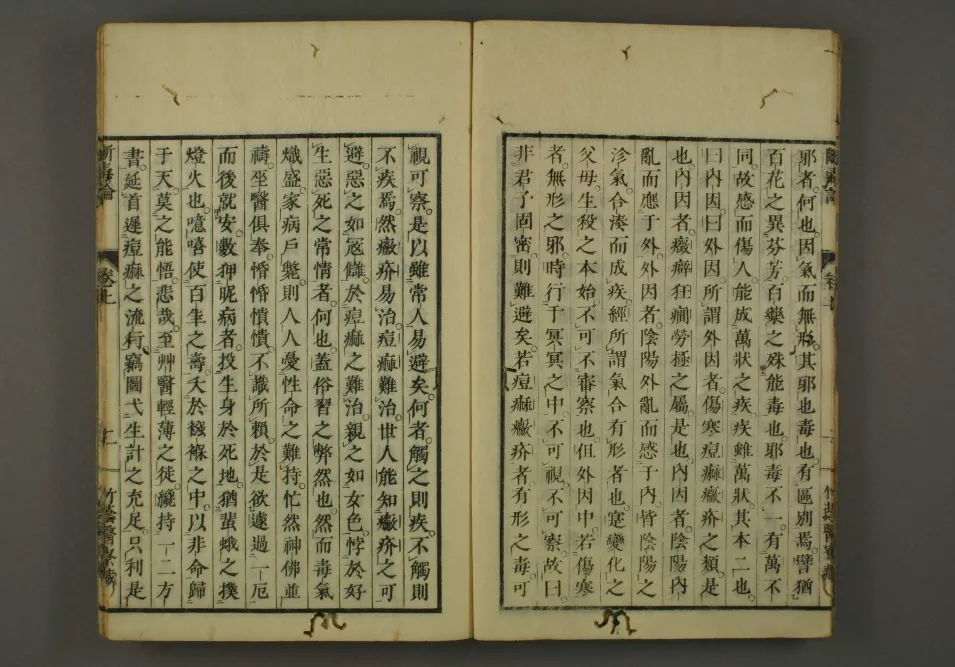 邪者何也因氣而無形其邪也毒也有區別焉譬猶
百花之異芬芳百藥之殊能毒也邪毒不一有萬不
同故感而傷人能成萬狀之疾疾雖萬狀其本二也
曰內因曰外因所謂外因者傷寒痘痲癥疥之類是
也內因者癥癖狂癇勞極之屬是也內因者陰陽內
亂而應于外外因者陰陽外亂而感于內皆陰陽之
沴氣合湊而成疾經所謂氣合有形者也寔變化之
父母生殺之本始不可不審察也但外因中若傷寒
者無形之邪時行于冥冥之中不可視不可察故曰
非君子固密則難避矣若痘痲癥疥者有形之毒可
視可察是以雖常人易避矣何者觸之則疾不觸則
不疾焉然癥疥易治痘痲難治世人能知癥疥之可
避惡之如冦讎於痘痲之難治親之如女色悖於好
生惡死之常情者何也蓋俗習之弊然也然而毒氣
熾盛家病戶斃則人人愛性命之難持忙然神佛並
禱巫醫俱奉惛惛憒憒不識所賴於是欲遽過一厄
而後就安數狎昵病者投生身於死地猶蜚蛾之撲
燈火也噫嘻使百年之壽夭於襁褓之中以非命歸
于天莫之能悟悲哉至艸醫輕薄之徒纔持一二方
書延首遲痘痲之流行竊圖弋生計之充足只利是
斷毒論
卷上
竹